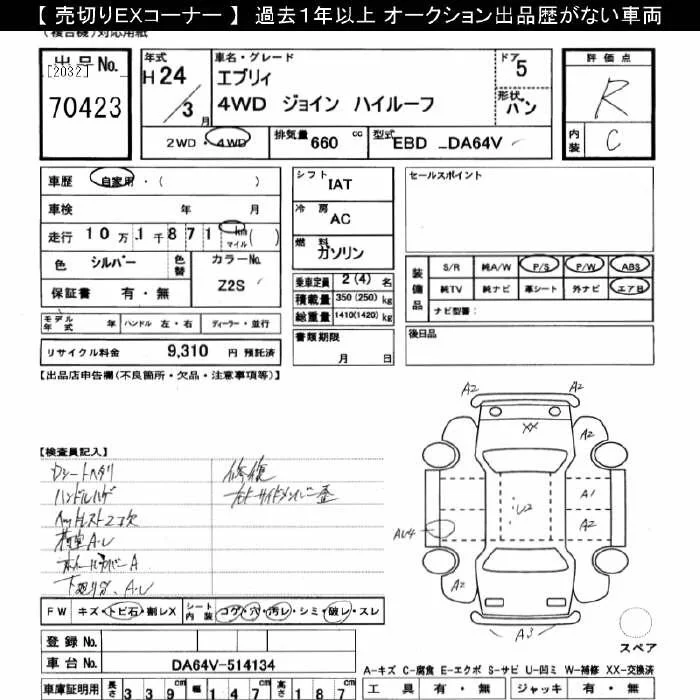 【 売切りEXコーナー 】 過去１年以上 オークション出品歴がない車両
(複合機)対応用紙
出品No.
[2032]
70423
年式
H 24 / 3 月
車名・グレード
エブリィ
4WD ジョイン ハイルーフ
ドア
5
形状
バン
2WD・4WD
排気量 660 cc
型式 EBD _DA64V
評価点
R
内装 C
車歴 自家用・( )
車検 年 月
走行 10万 1千 8 7 1 km マイル ( )
色 シルバー
色替
カラーNo.
Z2S
保証書 有・無
モデル年式 年
ハンドル 左・右
ディーラー・並行
リサイクル料金 9,310 円 預託済
シフト
IAT
冷房
AC
燃料
ガソリン
乗車定員 2 (4) 名
積載量 350 (250) kg
総重量 1410(1420) kg
書類期限
月 日
セールスポイント
装備品
S/R 純A/W P/S P/W ABS
純TV 純ナビ 革シート 外ナビ エアB
ナビ型番:
後日品
【出品店申告欄(不良箇所・欠品・注意事項等)】
【検査員記入】
Dシートヘタリ
ハンドルハゲ
ヘッドレスト2コ欠
荷室A・U
ホイールカバーA
下廻りサ、A・U
修復
右サイドメンバー歪
A2
A2
A2
XX
A1
U2
A2
AU4
A2
A2
A3
FW キズ・トビ石・割レX
シート内装 コゲ・穴・汚レ・シミ・破レ・スレ
スペア
登録No.
車台No. DA64V-514134
A-キズ C-腐食 E-エクボ S-サビ U-凹ミ W-補修 XX-交換済
車庫証明用 長さ 339 幅 147 高さ 187
工具 有・無 ジャッキ 有・無